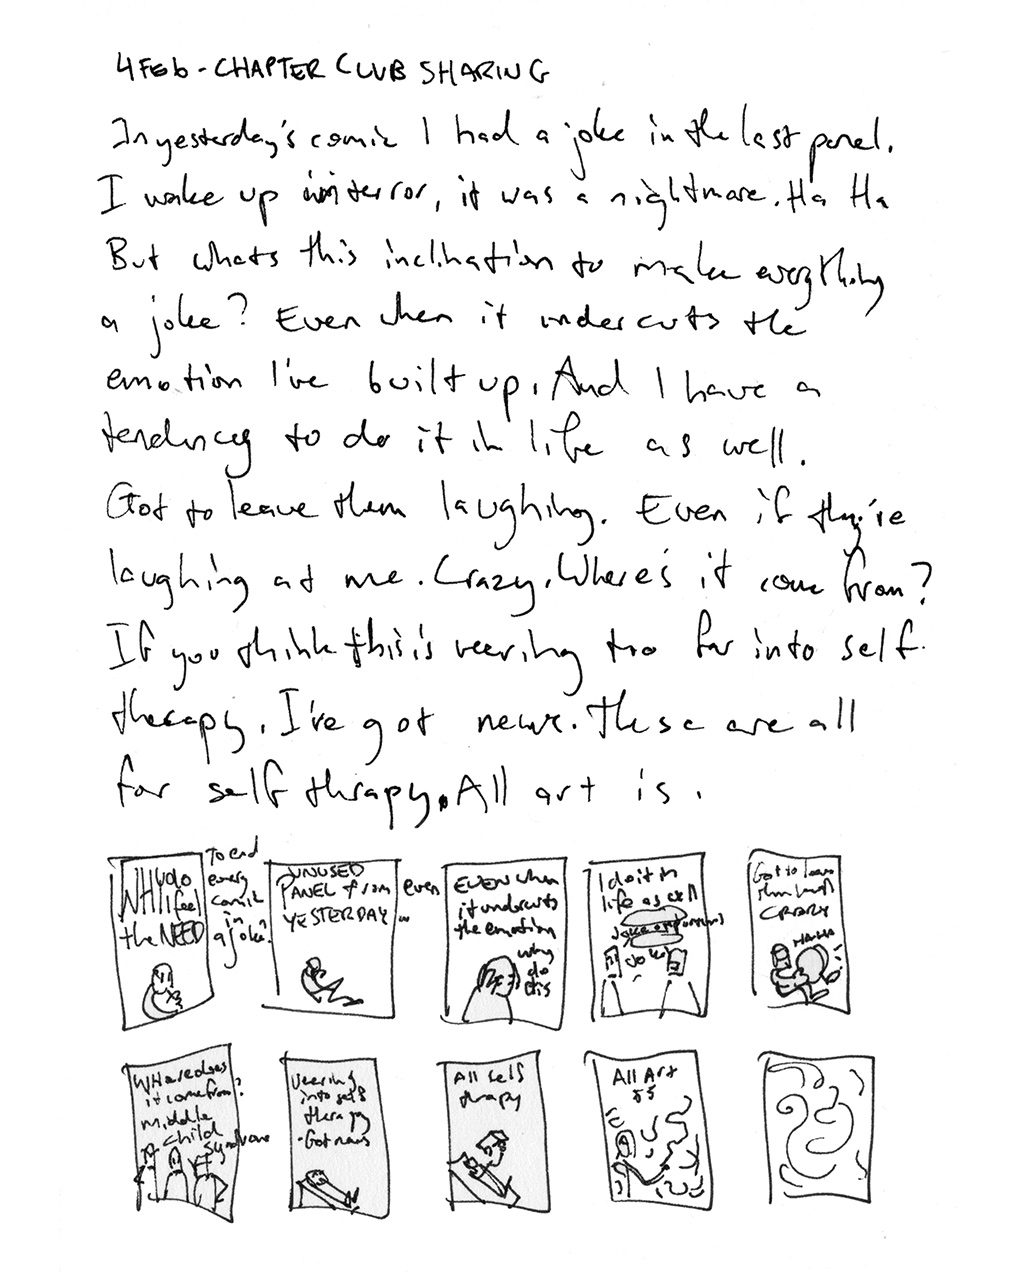 4 Feb - CHAPTER CLUB SHARING
In yesterday's comic I had a joke in the last panel.
I wake up in terror, it was a nightmare. Ha Ha
But whats this inclination to make everything
a joke? Even when it undercuts the
emotion I've built up. And I have a
tendency to do it in life as well.
Got to leave them laughing. Even if they're
laughing at me. Crazy. Where's it come from?
If you think this is veering too far into self
therapy, I've got news. These are all
for self thrapy. All art is.
WHY do
I feel
the NEED
To end
every
comic
in
a joke?
UNUSED
PANEL from
YESTERDAY
even
...
EVEN when
it undercuts
the emotion
why
do
this
I do it in
life as well
joke
Got to leave
them
CRAZY
HA-HA
Where does
it come from?
middle
child
syndrome
Veering
into self
therapy
-Got news
All self
thrapy
All Art
is